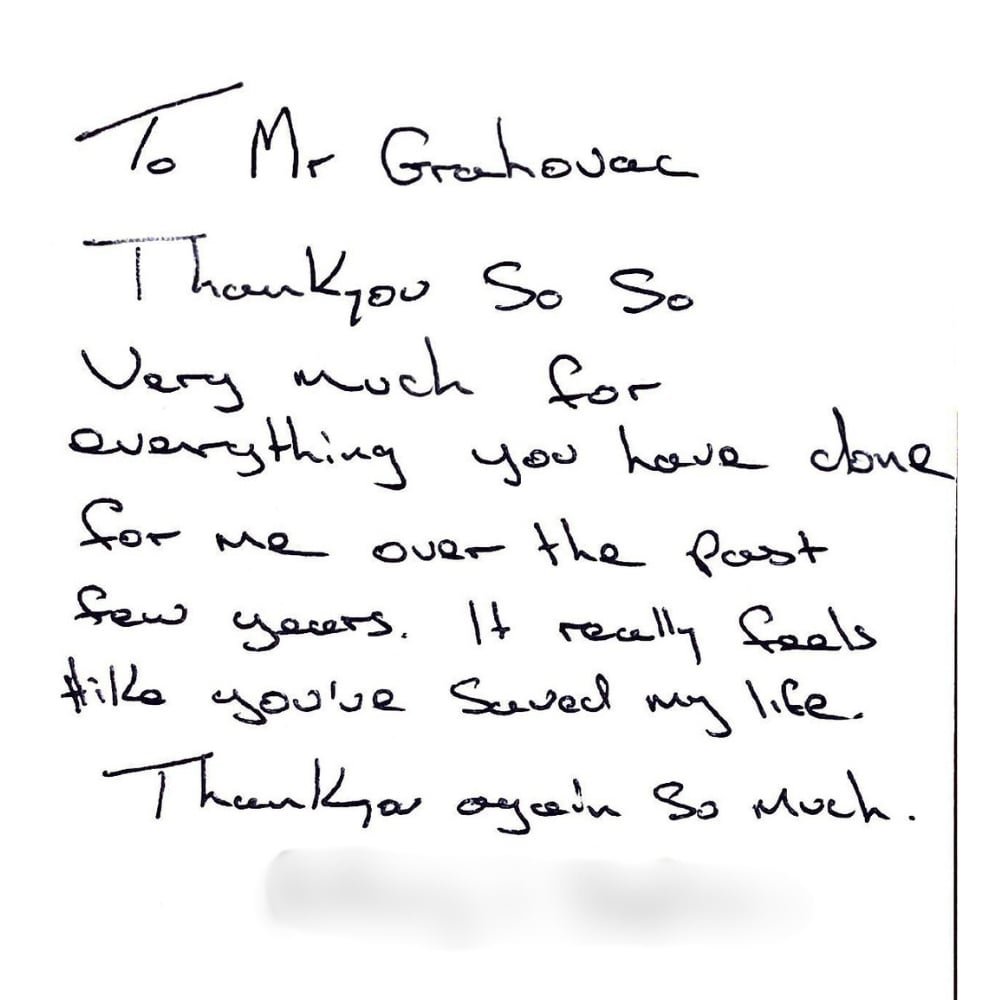 To Mr Grahovac
Thankyou So So
Very much for
everything you have done
for me over the past
few years. It really feels
like you've Saved my life.
Thankyou again So Much.